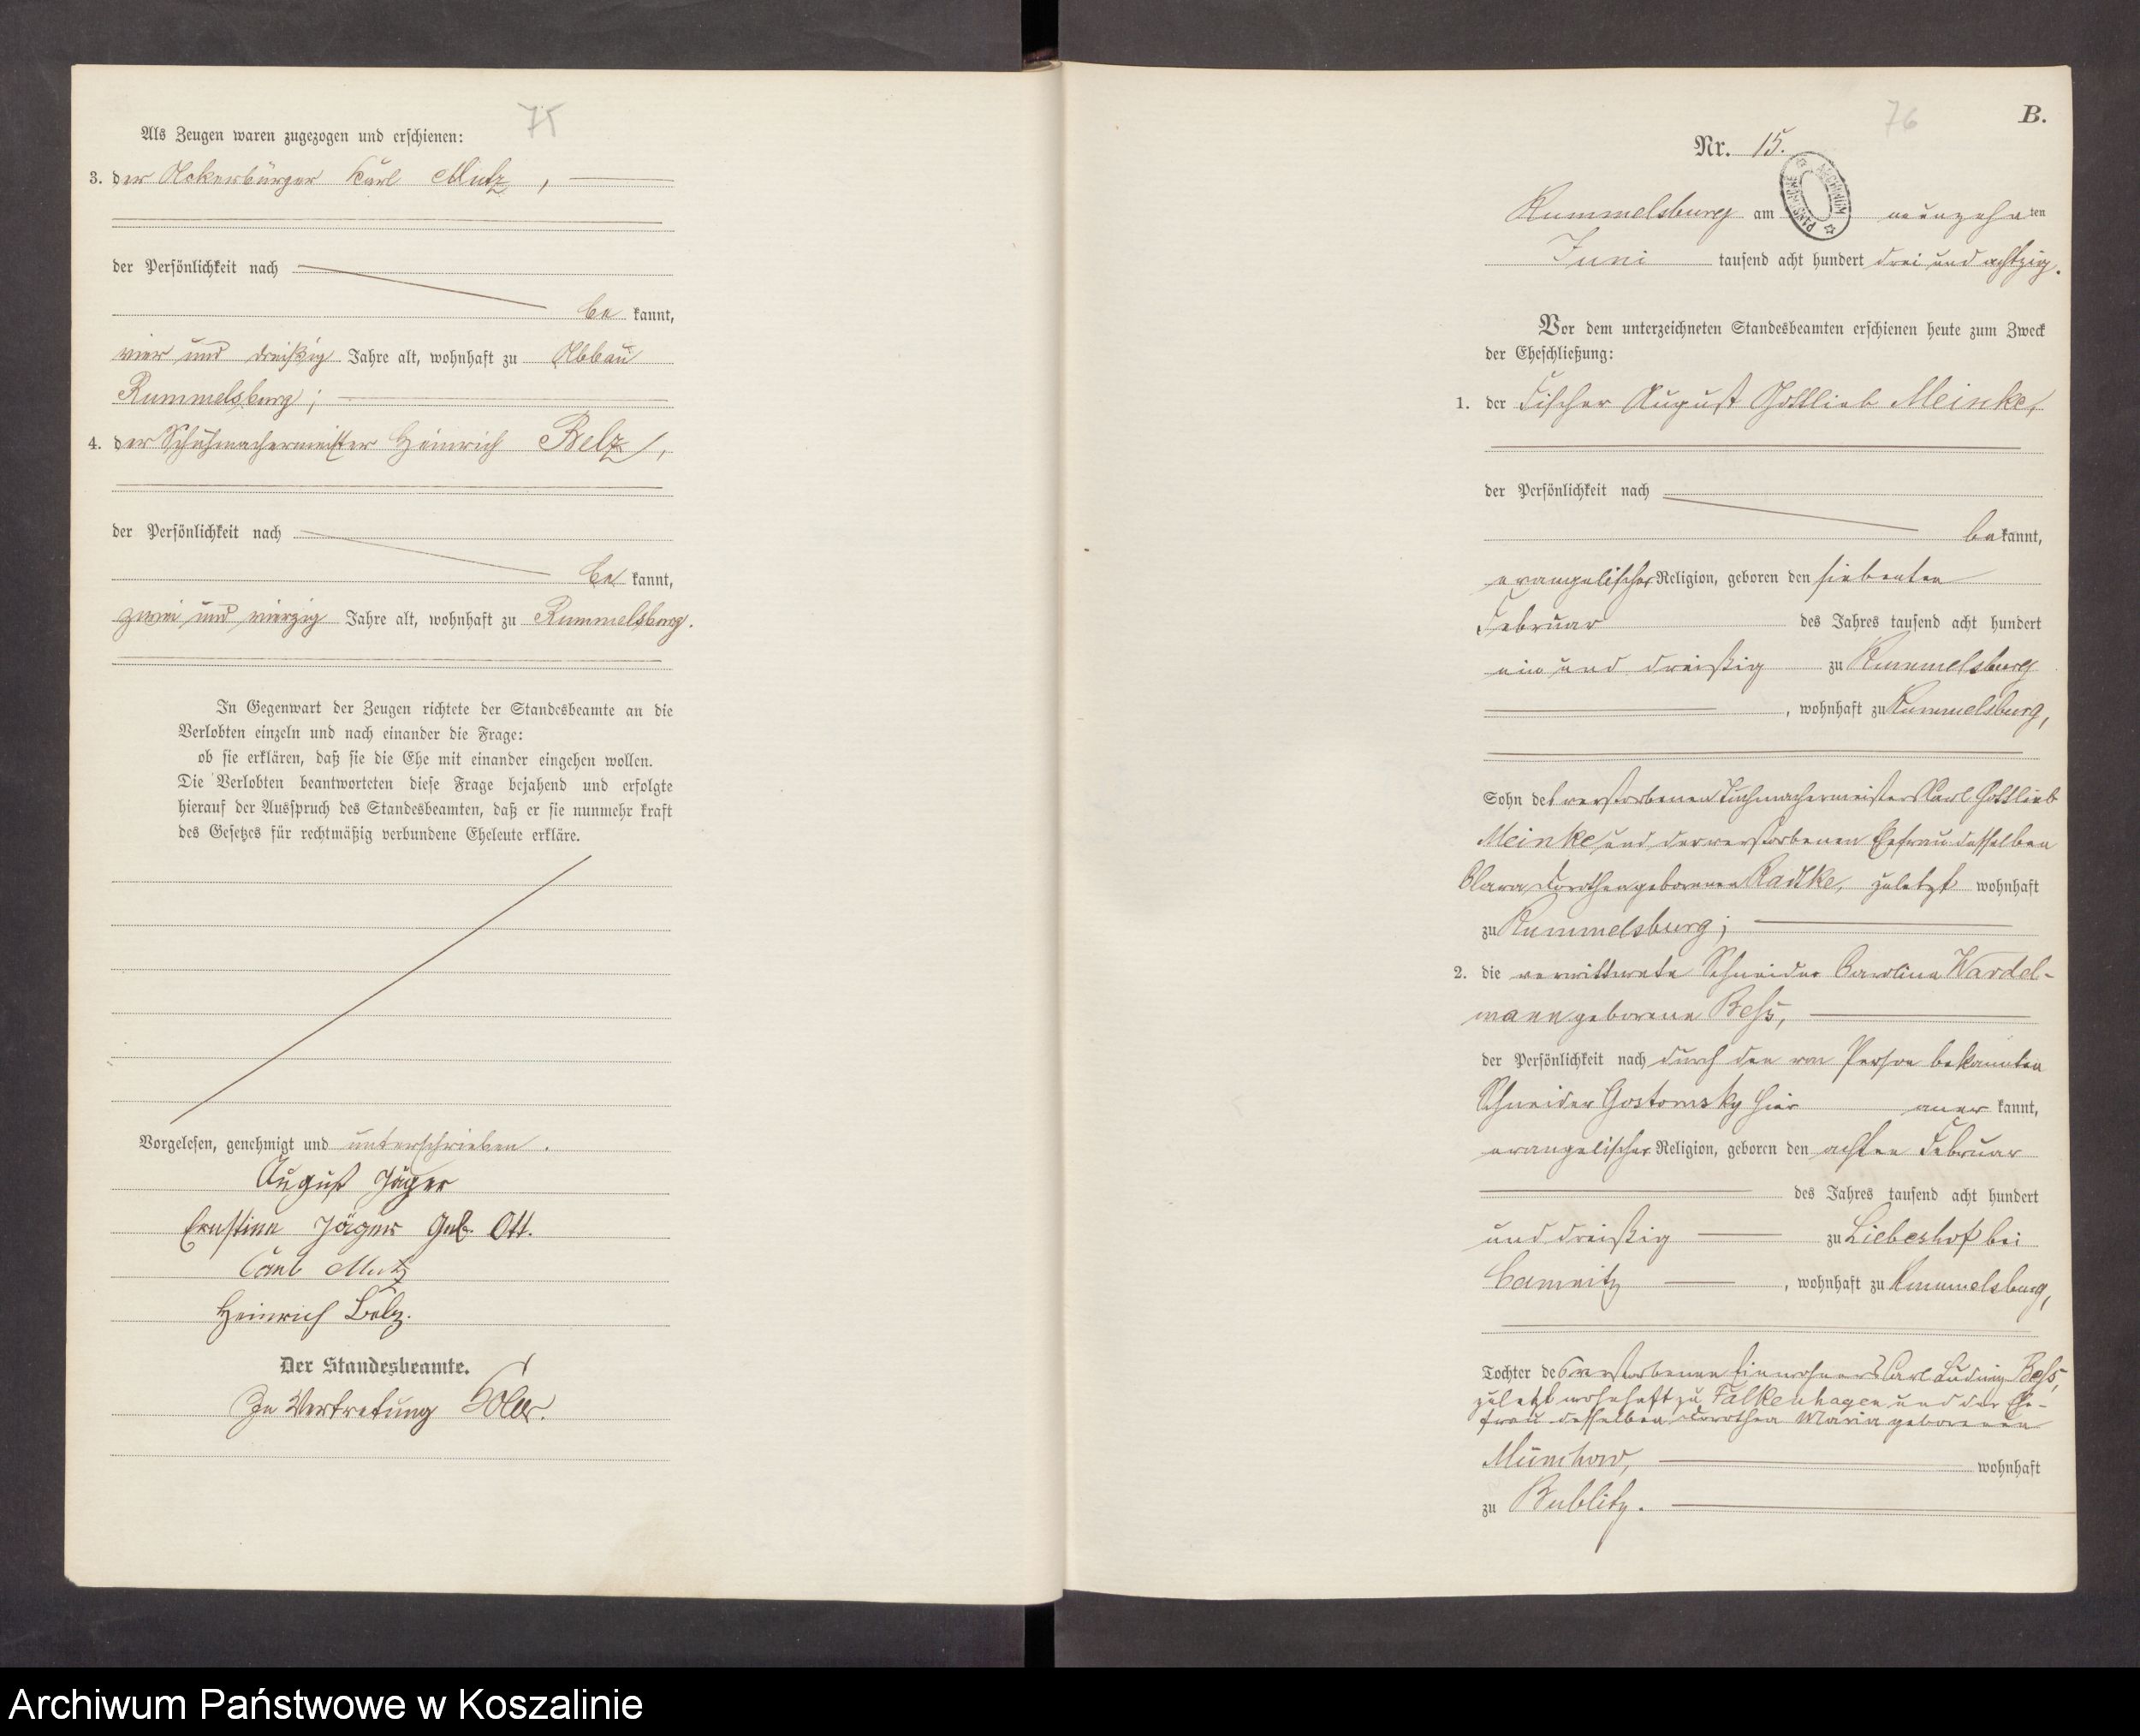 75
Als Zeugen waren zugezogen und erschienen:
3. der Ackerbürger Karl Mutz,
der Persönlichkeit nach
be kannt,
vier und dreißig Jahre alt, wohnhaft zu Abbau
Rummelsburg;
4. der Schuhmachermeister Heinrich Belz,
der Persönlichkeit nach
be kannt,
zwei und vierzig Jahre alt, wohnhaft zu Rummelsburg.
In Gegenwart der Zeugen richtete der Standesbeamte an die
Verlobten einzeln und nach einander die Frage:
ob sie erklären, daß sie die Ehe mit einander eingehen wollen.
Die Verlobten beantworteten diese Frage bejahend und erfolgte
hierauf der Ausspruch des Standesbeamten, daß er sie nunmehr kraft
des Gesetzes für rechtmäßig verbundene Eheleute erkläre.
Vorgelesen, genehmigt und unterschrieben.
August Jäger
Ernstine Jäger geb. Ott.
Carl Mutz
Heinrich Belz.
Der Standesbeamte.
In Vertretung
76
B.
Nr. 15.
ARCHIWUM PAŃSTWOWE
Rummelsburg am neunzehnten
Juni tausend acht hundert drei und achtzig.
Vor dem unterzeichneten Standesbeamten erschienen heute zum Zweck
der Eheschließung:
1. der Fischer August Gottlieb Meinke,
der Persönlichkeit nach
bekannt,
evangelischer Religion, geboren den siebenten
Februar des Jahres tausend acht hundert
ein und dreißig zu Rummelsburg
, wohnhaft zu Rummelsburg,
Sohn des verstorbenen Tuchmachermeisters Karl Gottlieb
Meinke und der verstorbenen Ehefrau desselben
Clara Dorothea geborenen Radtke, zuletzt wohnhaft
zu Rummelsburg;
2. die verwittwete Schneider Caroline Wardel-
mann geborene Beß,
der Persönlichkeit nach durch den von Person bekannten
Schneider Gostomsky hier aner kannt,
evangelischer Religion, geboren den achten Februar
des Jahres tausend acht hundert
und dreißig zu Liebeshof bei
Camnitz , wohnhaft zu Rummelsburg,
Tochter des verstorbenen Einwohners Carl Ludwig Beß,
zuletzt wohnhaft zu Falkenhagen und der Ehe-
frau desselben Dorothea Maria geborenen
Münchow, wohnhaft
zu Bublitz.
Archiwum Państwowe w Koszalinie